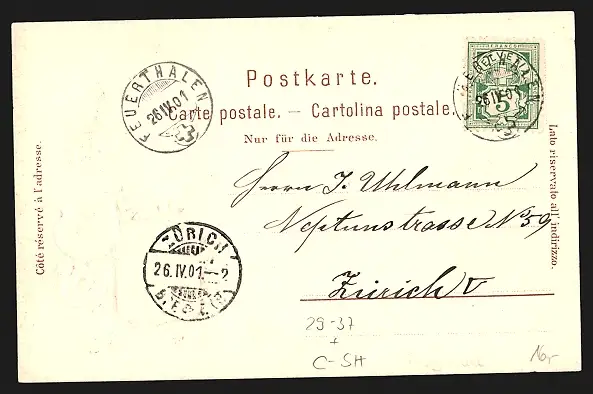 Postkarte.
Carte postale. — Cartolina postale.
Nur für die Adresse.
Côté réservé à l'adresse.
Lato riservato all'indirizzo.
FEUERTHALEN
26 IV 01
FRANCO
5
26 IV 01
Herrn J. Uhlmann
Neptunstrasse No 59
Zürich V
ZÜRICH
26. IV. 01.-2
29-37
+
C-SH
16,-